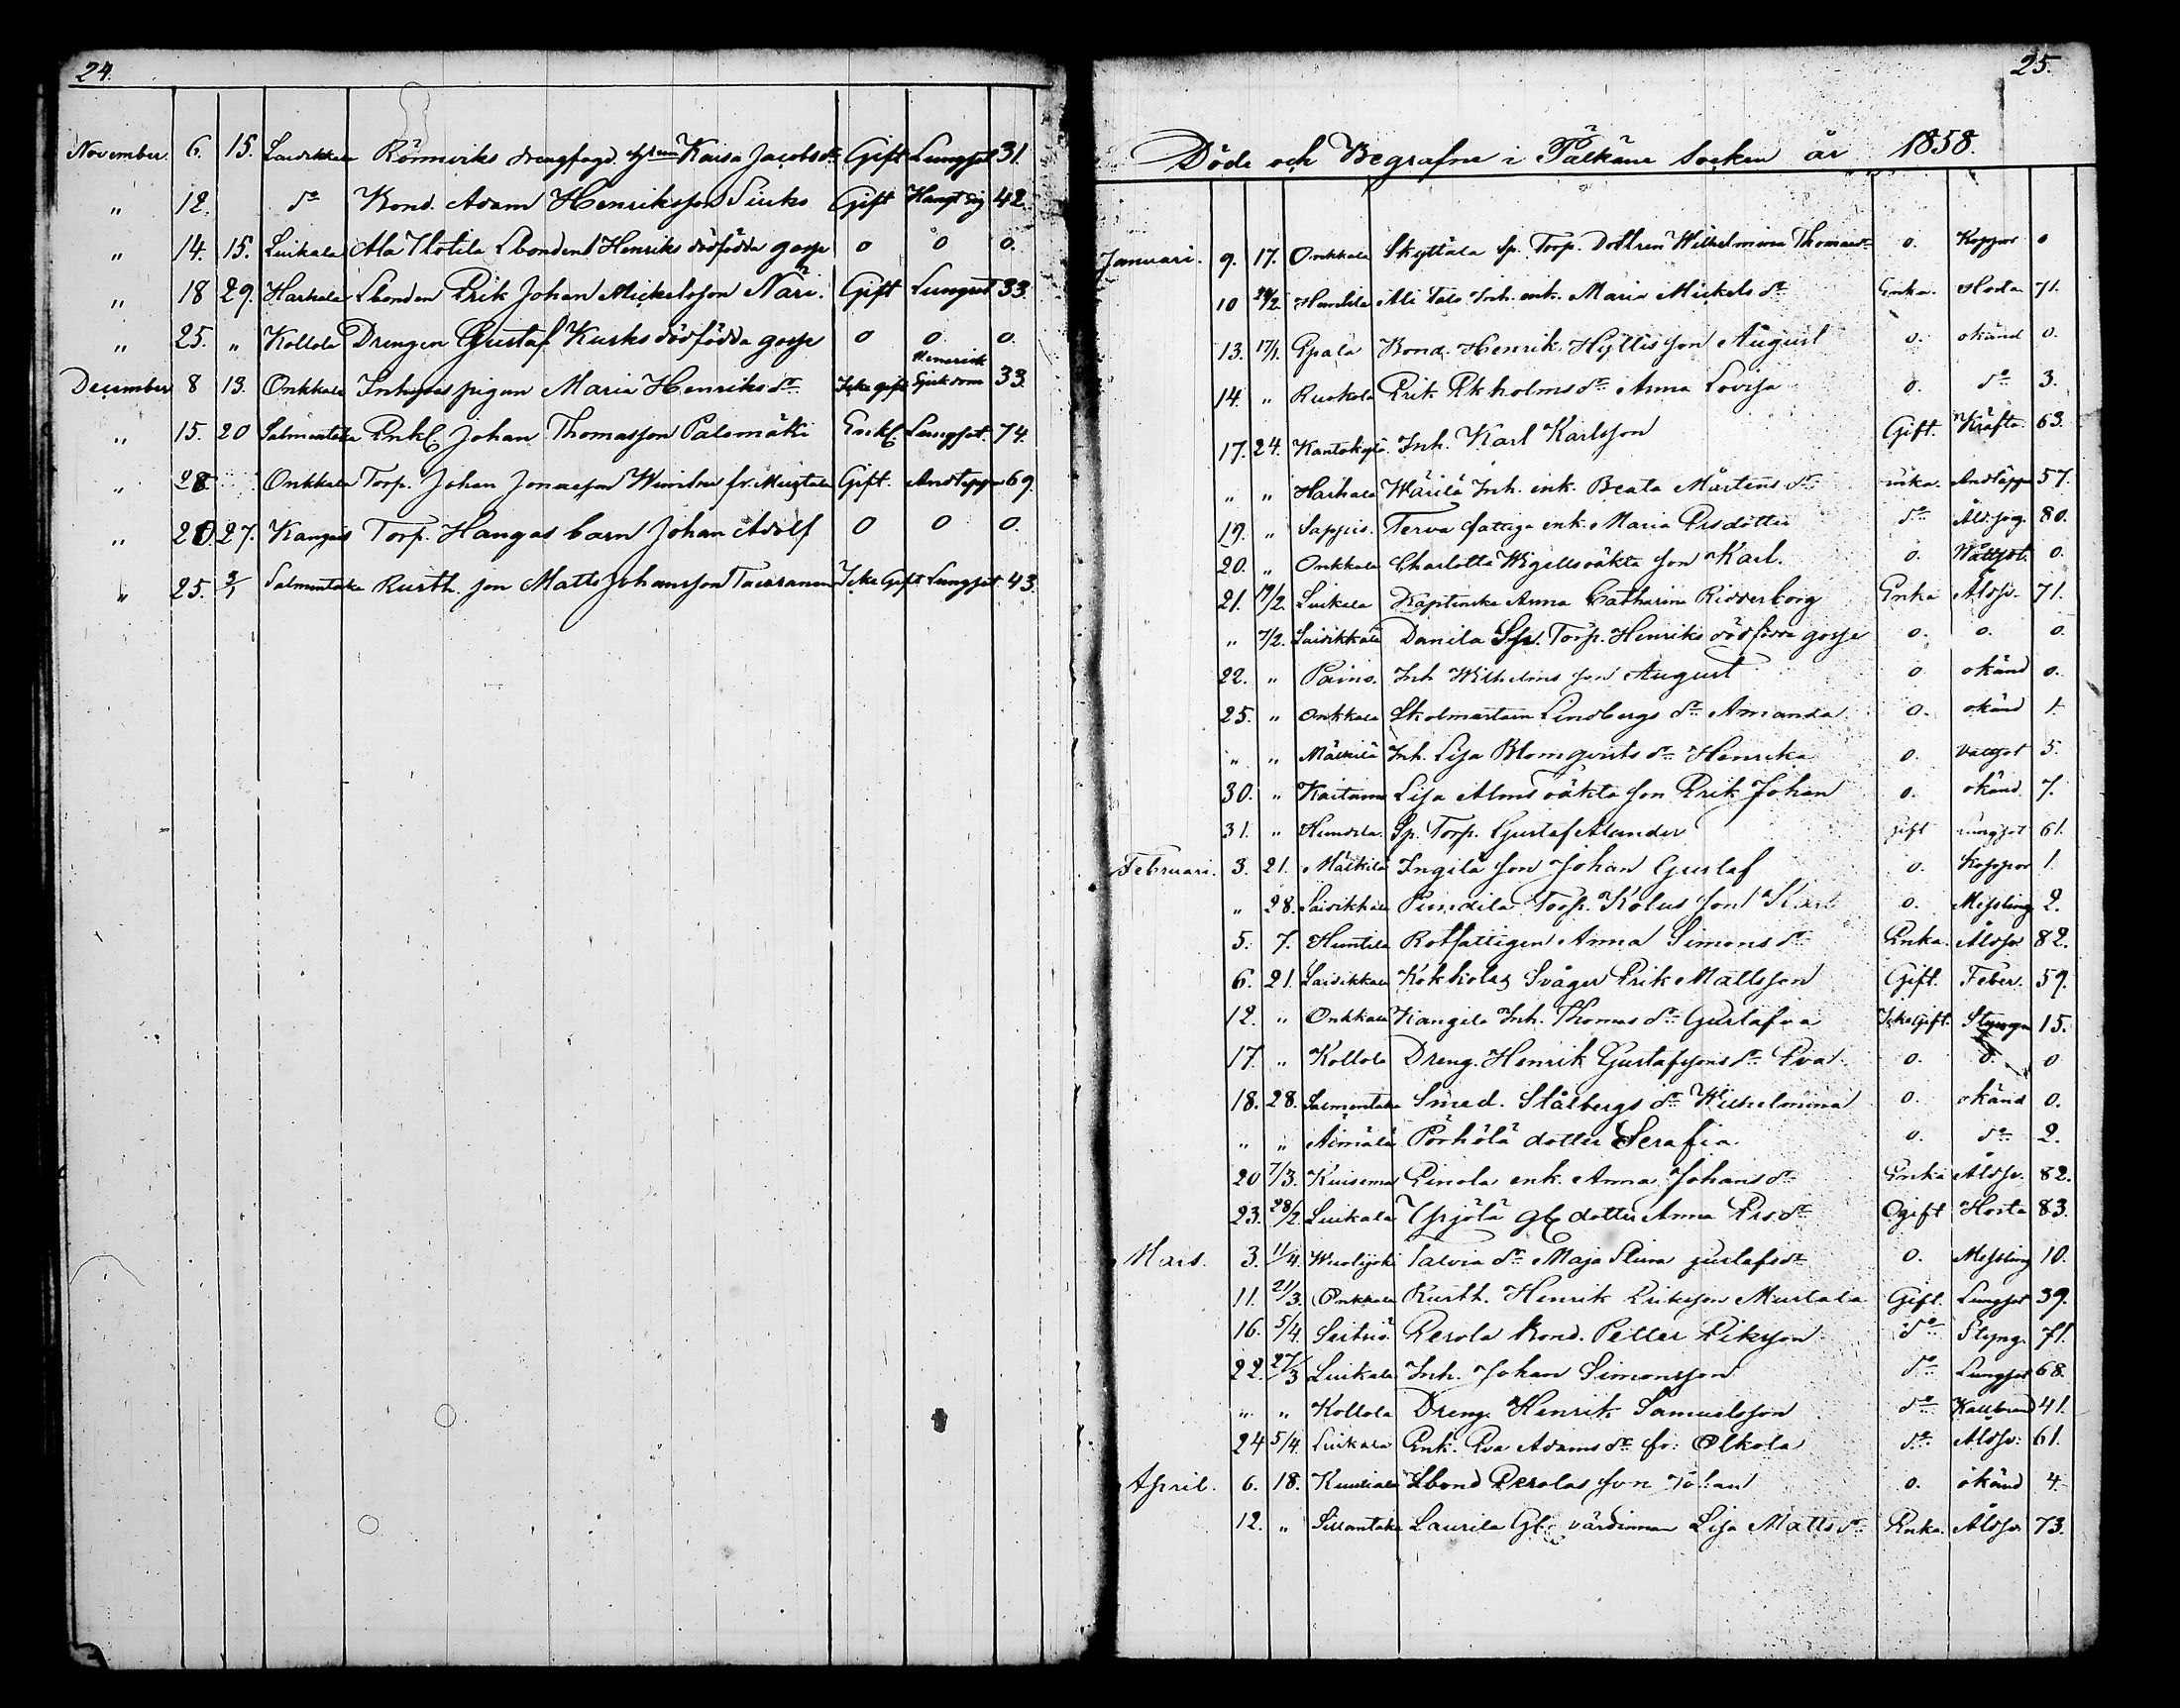 24.
November. 6. 15. Laidikkala Rönnviks drengfogd. Kaisa Jacobs dr Gift Lungsot 31.
" 12. do Bond. Adam Henriksson Siuko Gift Hängt sig 42.
" 14. 15. Luikala Ala Ilotila Lbonden Henriks dödfödda gosse o o o.
" 18 29. Harhala Lbonden Erik Johan Mickelsson Näri. Gift Lungsot 33.
" 25. " Kollola Drengen Gustaf Kurks dödfödda gosse o o o.
December 8 13. Onkkala Inhyses pigan Maria Henriks dr Icke gift Venerisk Sjukdom 33.
" 15. 20 Salmentaka Enkl. Johan Thomasson Palomäki Enkl. Lungsot. 74.
" 28 Onkkala Torp. Johan Jonasson fr. Mustala Gift. Andtäppa 69.
" 20. 27. Kangais Torp. Hangas barn Johan Adolf o o o.
" 25. 3/1 Salmentaka Rusth. son Matts Johansson Icke Gift Lungsot 43.
25.
Döde och Begrafne i Pälkäne Socken år 1858.
Januari. 9. 17. Onkkala Skyttälä Sp. Torp. Dottren Wilhelmina Thomasdr o. Koppor o
10 Huntila Ali Talo Inh. enk. Maria Mickels dr Enka. Hosta 71.
13. 17/1. Epala Bond. Henrik Hyttis son August o. okänd o.
14. " Ruokola Erik Ekholms dr Anna Lovisa o. do 3.
17. 24. Kantokylä Inh. Karl Karlsson Gift. Kräfta 63.
" " Harhala Wärilä Inh. enk. Beata Mårtens dr enka. Andtäppa 57.
19. " Sappis. Terva fattiga enk. Maria Ersdotter do Åld. sog. 80.
20. " Onkkala Charlotta Wigells oäkta son Karl. o. Wattsot. o.
21. 14/2. Luikala Kaptenska Anna Catharina Ridderborg Enka Åldr. 71.
" 7/2. Laidikkala Danila Sp. Torp. Henriks dödfödda gosse o. o. o.
22. " Paino. Inh Wilhelms son August o okänd o.
25. " Onkkala Skolmästarn Lindbergs dr Amanda o. okänd 1.
" " Mälkilä Inh. Lisa Blomqvists dr Henrika o. Vattsot 5.
30. " Kaitama Lisa Alms oäkta son Erik Johan o. okänd. 7.
31. " Huntila. Sp. Torp. Gustaf Alander gift Lungsot 61.
Februari. 3. 21. Mälkilä Ingilä son Johan Gustaf o. Koppor 1.
" 28. Laidikkala Pundila Torp. Kolus son Karl o. Messling 2.
5. 7. Huntila Rotfattigen Anna Simons dr Enka. Åldr 82.
6. 21. Laidikkala Kokkolas Svåger Erik Mattsson Gift. Feber. 59.
12. " Onkkala Kangila Inh. Thomas dr Gustafva Icke gift. Styngn 15.
17. " Kollola Dreng. Henrik Gustafssons dr Eva o. o. o
18. 28. Salmentaka Smed. Stålbergs dr Wilhelmina o. okänd o.
" " Äimälä Pörhölä dotter Serafia. o. do 2.
20 7/3. Kuisema Einola enk. Anna Johans dr Enka Åldr. 82.
23. 28/2. Luikala Yrjölä gl dotter Anna Ers dr Ogift Hosta 83.
Mars. 3. 11/4. Wuolijoki Talvia dr Maja Stina gustafs dr o. Messling 10.
11. 21/3. Onkkala Rusth. Henrik Eriksson Mustala Gift. Lungsot 39.
16. 5/4. Seitsiö. Perola Bond. Petter Eriksson do Styng. 71.
22. 27/3 Luikala Inh. Johan Simonsson do Lungsot 68.
" " Kollola Dreng Henrik Samuelsson do Kallbrand 41.
24 5/4. Luikala Enk. Eva Adams dr fr: Olkola do Åldr: 61.
April. 6. 18. Kuuliala Lbond Perolas son Johan o. okänd 4.
12. " Sillantaka Laurila Gl. värdinnan Lisa Matts dr Enka. Åldr 73.